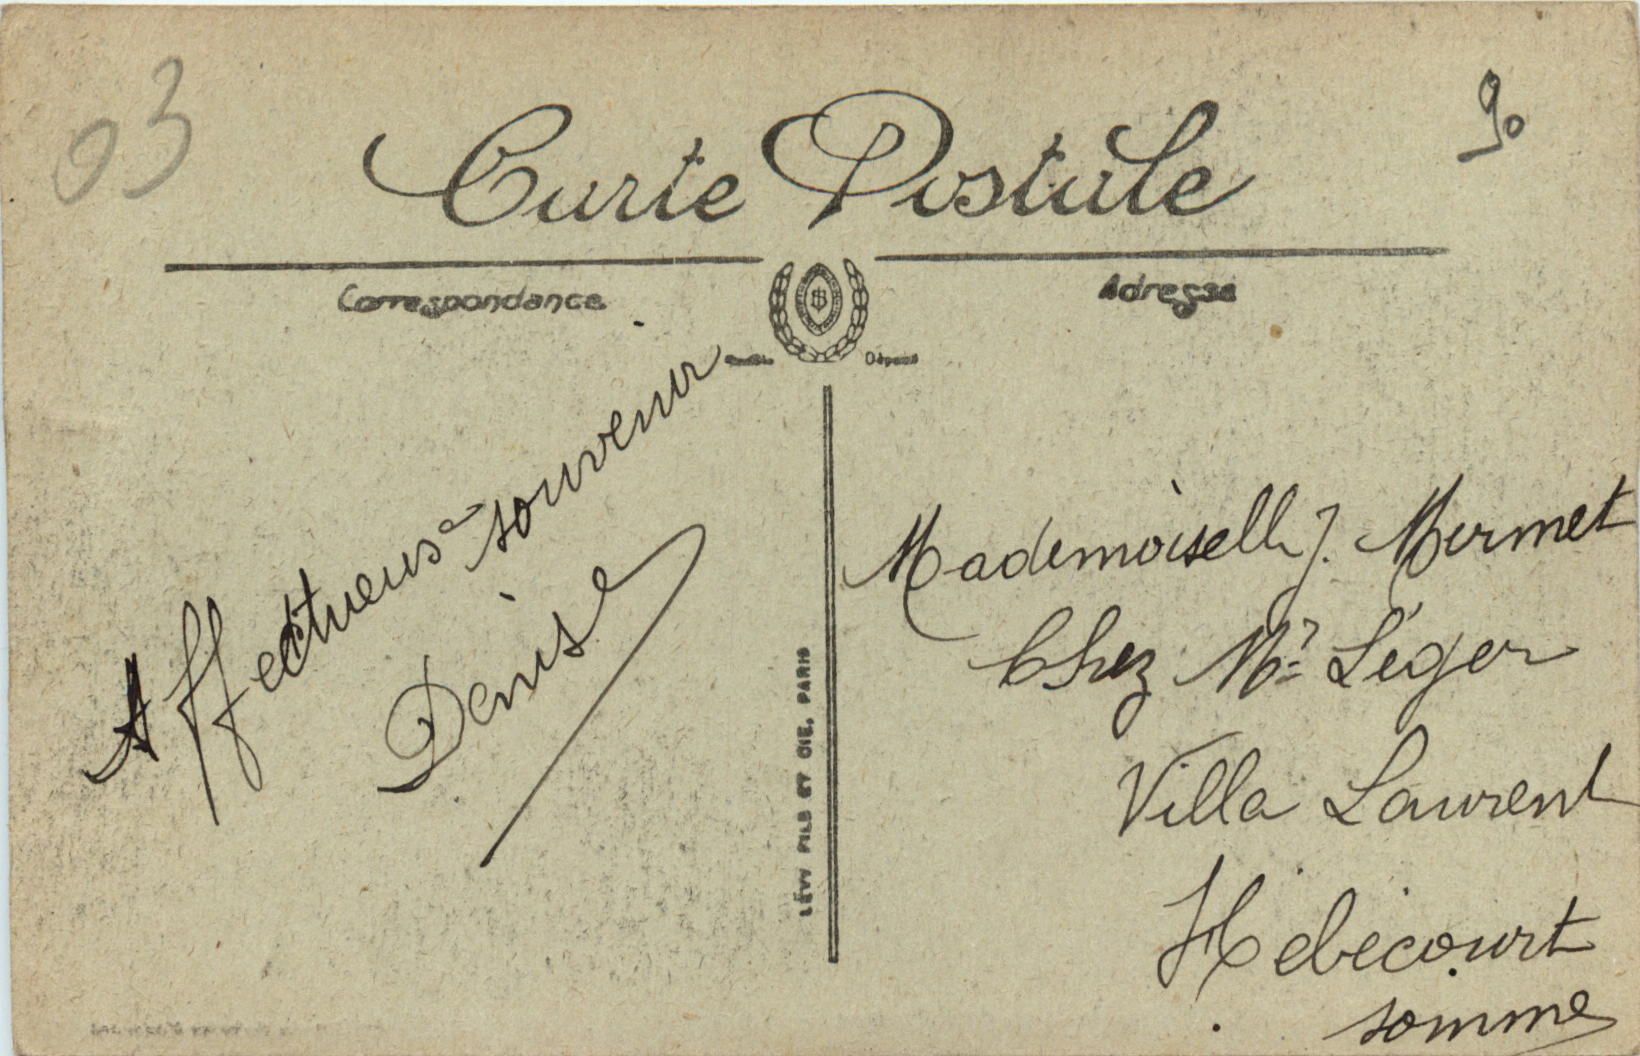 03
90
Carte Postale
Correspondance
Adresse
B
Déposé
Affectueux souvenir
Denise
LÉVY FILS ET CIE, PARIS
Mademoiselle J. Mermet
Chez Mr Léger
Villa Laurent
Hébécourt
Somme